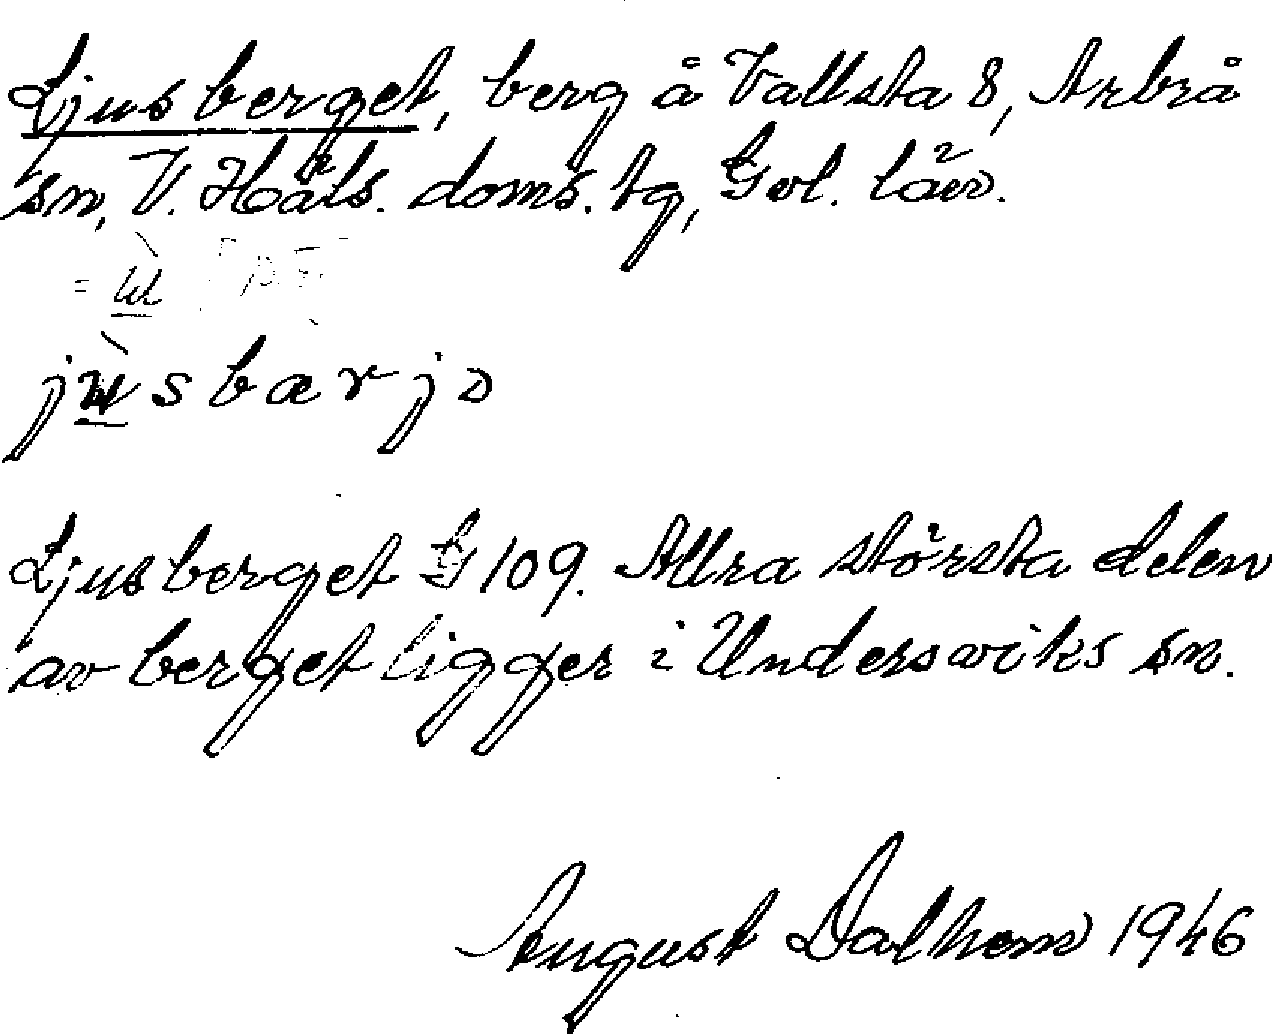 Ljusberget, berg å Vallsta 8, Arbrå
sn, V. Häls. doms. tg, Gvl. län.
= ù̠
jù̠sbærjə
Ljusberget G 109. Allra största delen
av berget ligger i Undersviks sn.
August Dalhem 1946